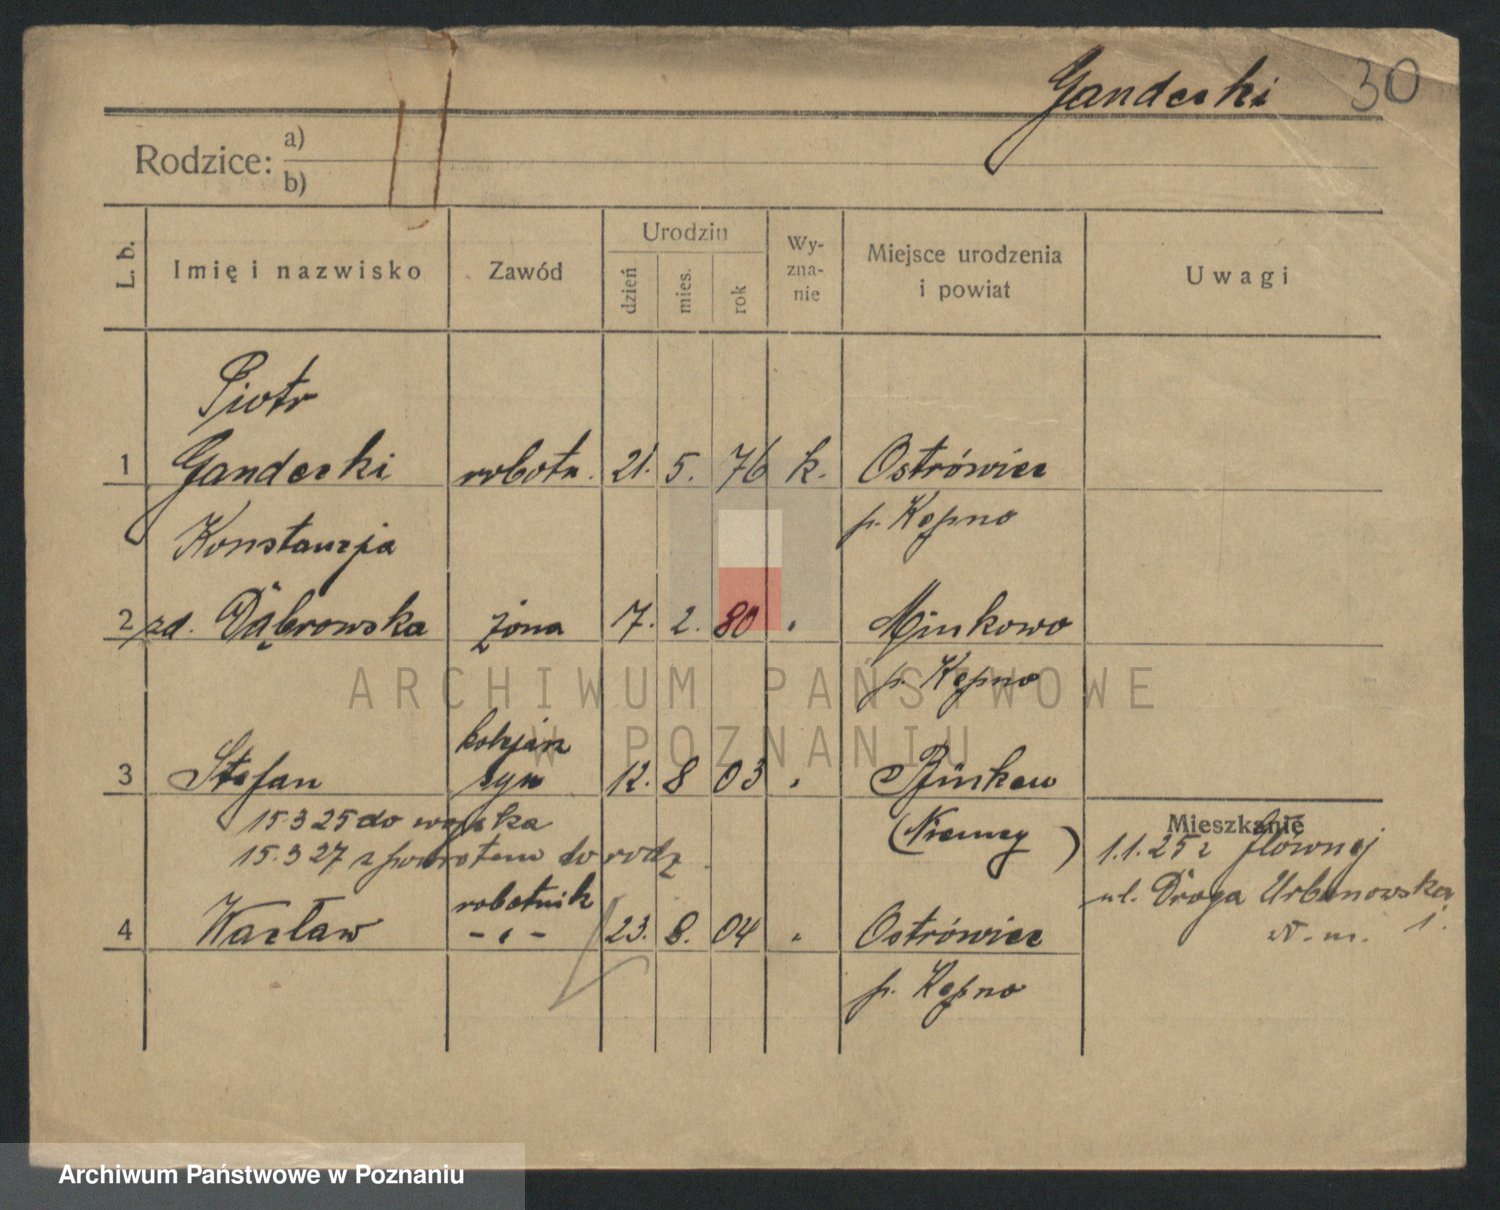 Gandecki 30
Rodzice: a)
b)
L. b. Imię i nazwisko Zawód Urodzin dzień mies. rok Wyznanie Miejsce urodzenia i powiat Uwagi
Piotr
1 Gandecki robotn. 21. 5. 76 k. Ostrówiec
p. Kępno
Konstancja
2 zd. Dąbrowska żona 7. 2. 80 " Minkowo
p. Kępno
ARCHIWUM PAŃSTWOWE
W POZNANIU
3 Stefan syn 12. 8 03 "
15.3 25 do wojska
(Niemcy)
15.3 27 z powrotem do rodz.
Mieszkanie
1.1.25 z Głównej
ul. Droga Urbanowska
1.
robotnik
4 Wacław - " - 23. 8. 04 " Ostrówiec
p. Kępno
Archiwum Państwowe w Poznaniu